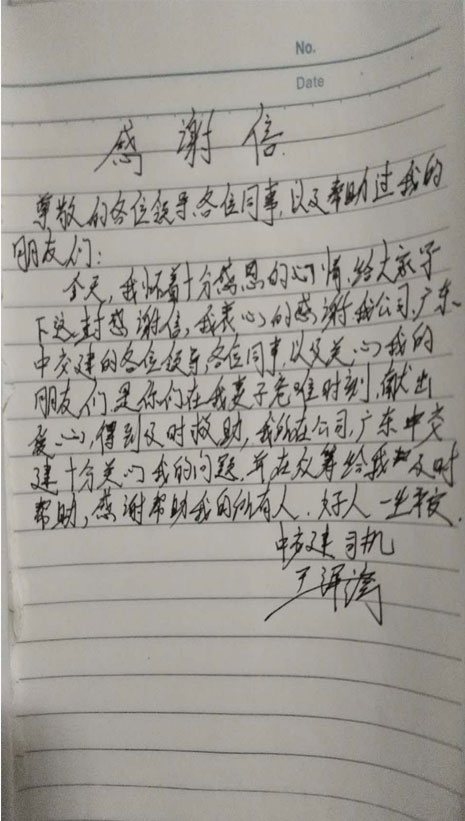 No.
Date
感谢信
尊敬的各位领导、各位同事，以及帮助过我的
朋友们：
今天，我怀着十分感恩的心情，给大家写
下这封感谢信，我衷心的感谢我公司，广东
中交建的各位领导，各位同事，以及关心我的
朋友们，是你们在我妻子危难时刻，献出
爱心，得到及时救助，我所在公司，广东中交
建十分关心我的问题，并在众筹给我及时
帮助，感谢帮助我的所有人，好人一生平安。
中交建司机
王